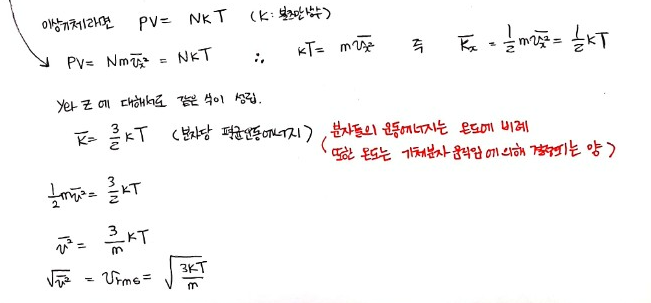 이상기체라면 PV = NkT (k: 볼츠만상수)
PV = Nm\overline{v_x^2} = NkT ∴ kT = m\overline{v_x^2} 즉 \overline{K_x} = \frac{1}{2}m\overline{v_x^2} = \frac{1}{2}kT
y와 z에 대해서도 같은 식이 성립.
\overline{K} = \frac{3}{2}kT (분자당 평균운동에너지) (분자들의 운동에너지는 온도에 비례
또한 온도는 기체분자 움직임에 의해 결정되는 양)
\frac{1}{2}m\overline{v^2} = \frac{3}{2}kT
\overline{v^2} = \frac{3}{m}kT
\sqrt{\overline{v^2}} = v_{rms} = \sqrt{\frac{3kT}{m}}